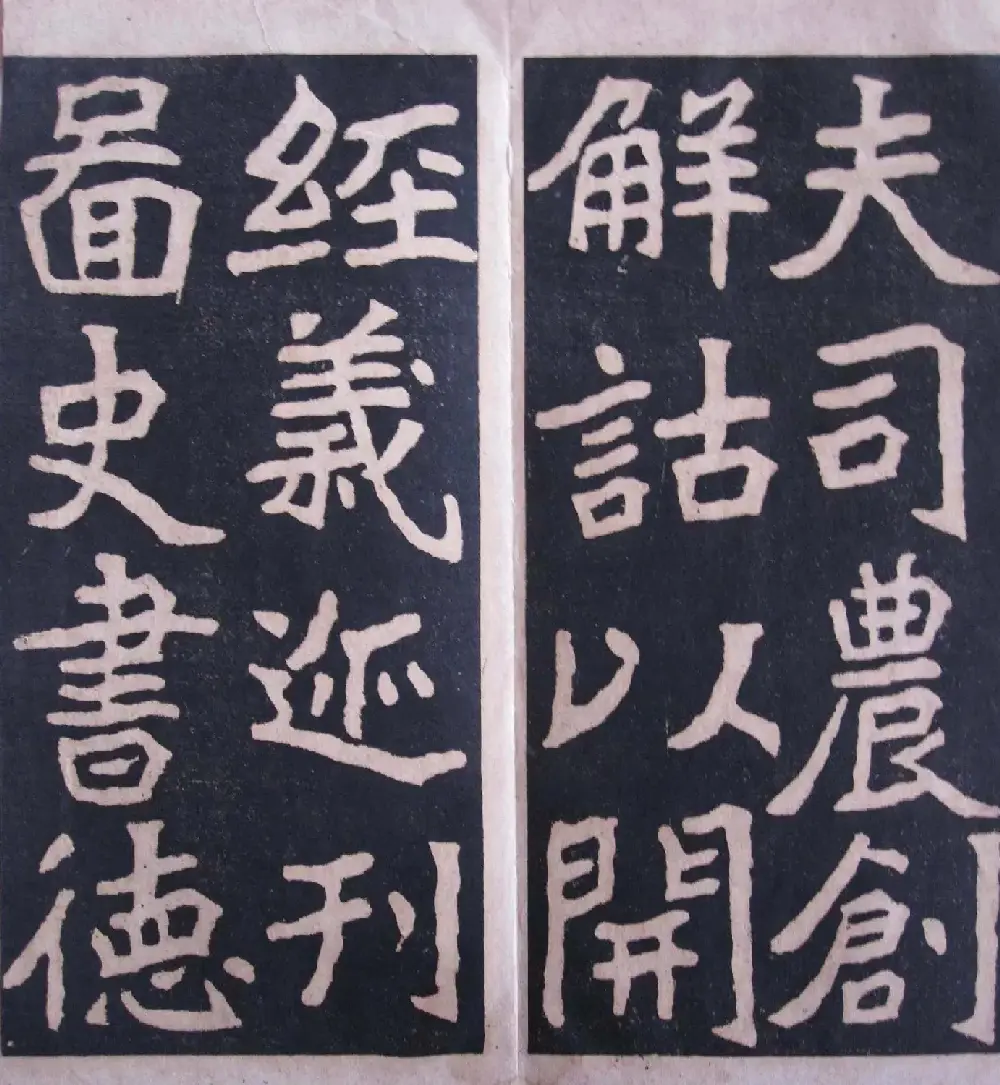 夫司農創
解詁以開
經義刊
啚史書德